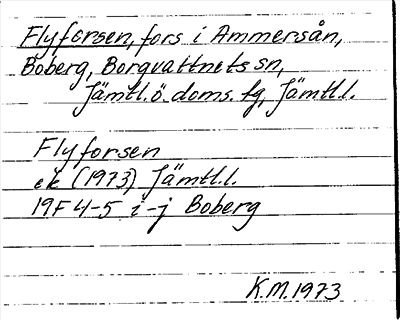 Flyforsen, fors i Ammersån,
Boberg, Borgvattnets sn,
Jämtl.ö. doms. fg, Jämtl.l.
Flyforsen
ek (1973) Jämtl.l.
19F 4-5 i-j Boberg
K.M.1973